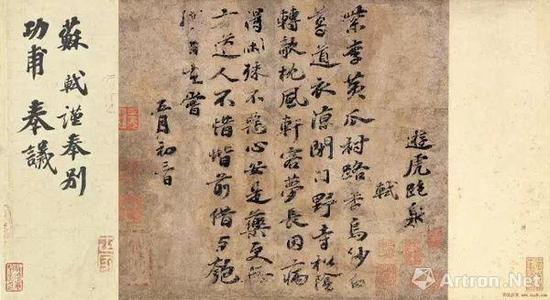 遊虎跑泉
軾
紫李黃瓜村路香烏紗白
葛道衣涼閉門野寺松陰
轉欹枕風軒客夢長因病
得閑殊不惡心安是藥更無
方道人不惜堦前借与匏
自在嘗
五月初三日
蘇軾謹奉別
功甫奉議
Artron.Net